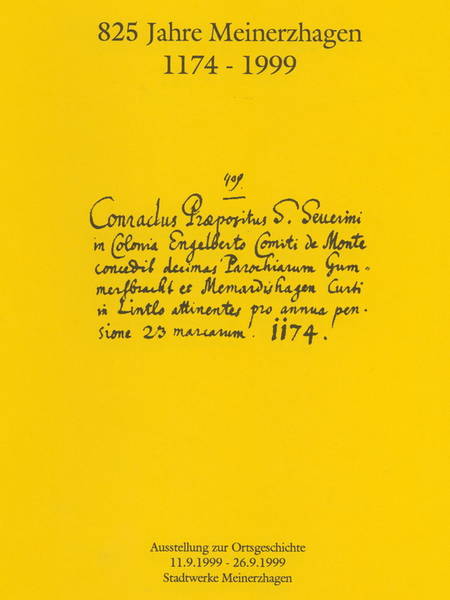 825 Jahre Meinerzhagen
1174 - 1999
409.
Conradus Præpositus S. Severini
in Colonia Engelberto Comiti de Monte
concedit decimas Parochiarum Gum=
mersbracht et Memardishagen Curti
in Lintlo attinentes pro annua pen-
sione 23 marcarum. 1174.
Ausstellung zur Ortsgeschichte
11.9.1999 - 26.9.1999
Stadtwerke Meinerzhagen